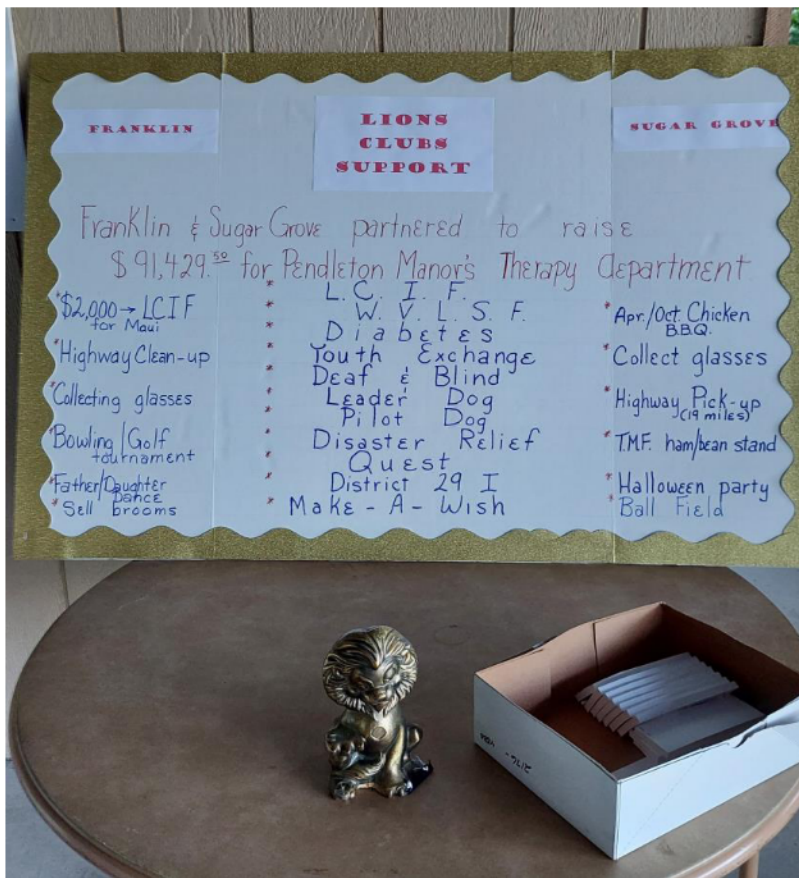 FRANKLIN
LIONS
CLUBS
SUPPORT
SUGAR GROVE
Franklin & Sugar Grove partnered to raise
$91,429.50 for Pendleton Manor's Therapy department
*$2,000→LCIF
for Maui
*Highway Clean-up
*Collecting glasses
*Bowling/Golf
tournament
*Father/Daughter
Dance
*Sell brooms
* L. C. I. F.
* W. V. L. S. F.
* Diabetes
* Youth Exchange
* Deaf & Blind
* Leader Dog
* Pilot Dog
* Disaster Relief
* Quest
* District 29 I
* Make-A-Wish
*Apr./Oct. Chicken
B.B.Q.
*Collect glasses
*Highway Pick-up
(19 miles)
*T.M.F. ham/bean stand
*Halloween party
*Ball Field